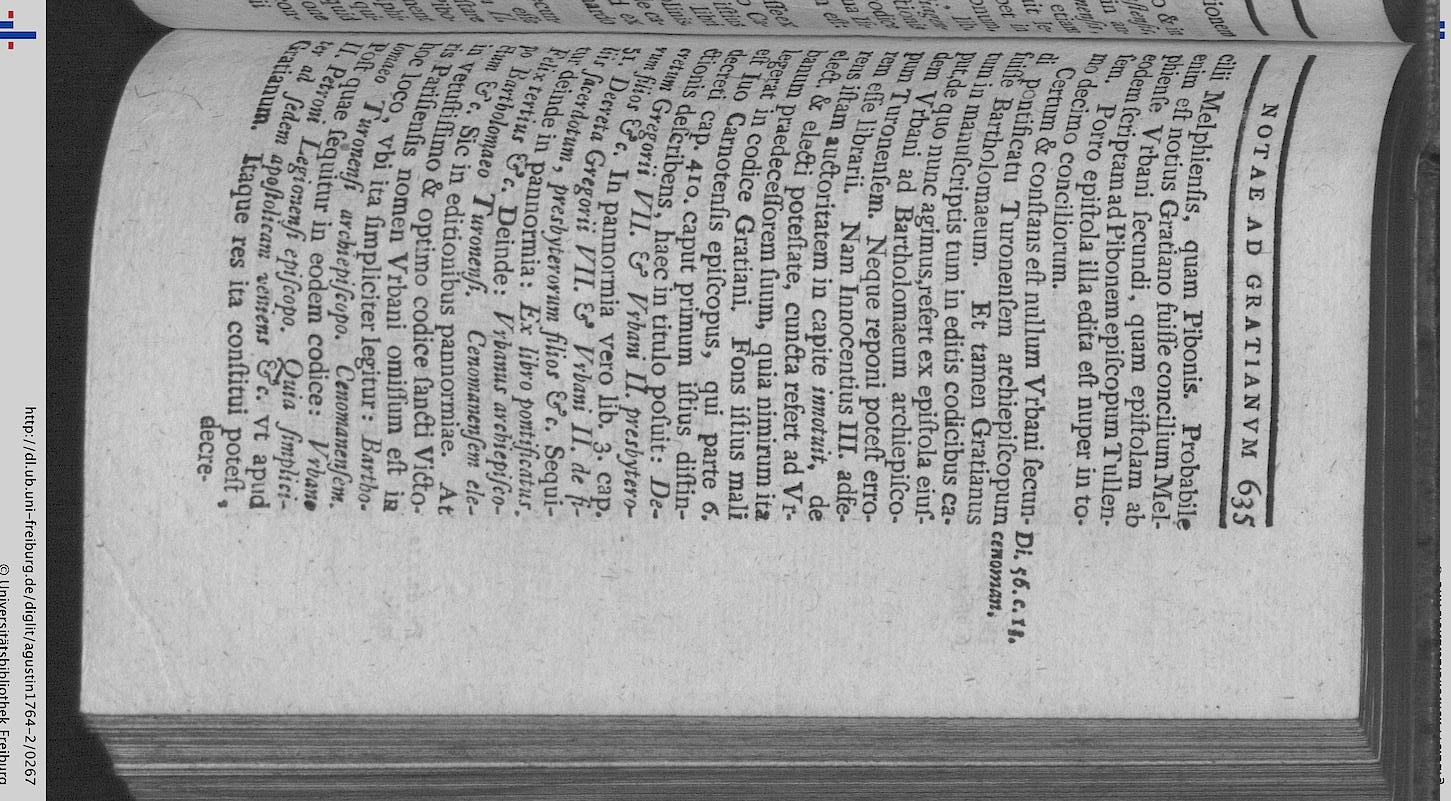 NOTAE AD GRATIANVM 635
cilii Melphienſis, quam Pibonis. Probabile
enim eſt notius Gratiano fuiſſe concilium Mel-
phienſe Vrbani ſecundi, quam epiſtolam ab
eodem ſcriptam ad Pibonem epiſcopum Tullen-
ſem. Porro epiſtola illa edita eſt nuper in to-
mo decimo conciliorum.
Certum & conſtans eſt nullum Vrbani ſecun-
di pontificatu Turonenſem archiepiſcopum
fuiſſe Bartholomaeum. Et tamen Gratianus
tum in manuſcriptis tum in editis codicibus ca-
put, de quo nunc agimus, refert ex epiſtola eiuſ-
dem Vrbani ad Bartholomaeum archiepiſco-
pum Turonenſem. Neque reponi poteſt erro-
rem eſſe librarii. Nam Innocentius III. adſe-
rens iſtam auctoritatem in capite innotuit, de
elect. & electi poteſtate, cuncta refert ad Vr-
banum praedeceſſorem ſuum, quia nimirum ita
legerat in codice Gratiani. Fons iſtius mali
eſt Iuo Carnotenſis epiſcopus, qui parte 6.
decreti cap. 410. caput primum iſtius diſtin-
ctionis deſcribens, haec in titulo poſuit: De-
cretum Gregorii VII. & Vrbani II. presbytero-
rum filios &c. In pannormia vero lib. 3. cap.
51. Decreta Gregorii VII. & Vrbani II. de fi-
liis ſacerdotum, presbyterorum filios &c. Sequi-
tur deinde in pannormia: Ex libro pontificatus.
Felix tertius &c. Deinde: Vrbanus archiepiſco-
po Bartholomaeo Turonenſi. Cenomanenſem ele-
ctum &c. Sic in editionibus pannormiae. At
in vetuſtiſſimo & optimo codice ſancti Victo-
ris Pariſienſis nomen Vrbani omiſſum eſt in
hoc loco, vbi ita ſimpliciter legitur: Bartho-
lomaeo Turonenſi archiepiſcopo. Cenomanenſem.
Poſt quae ſequitur in eodem codice: Vrbano
II. Petrom Legionenſi epiſcopo. Quia ſimplici-
ter ad ſedem apoſtolicam veniens &c. vt apud
Gratianum. Itaque res ita conſtitui poteſt,
decre-
Di. 56. c. 13.
cenoman.
http://dl.ub.uni-freiburg.de/diglit/agustin1764-2/0267
© Universitätsbibliothek Freiburg